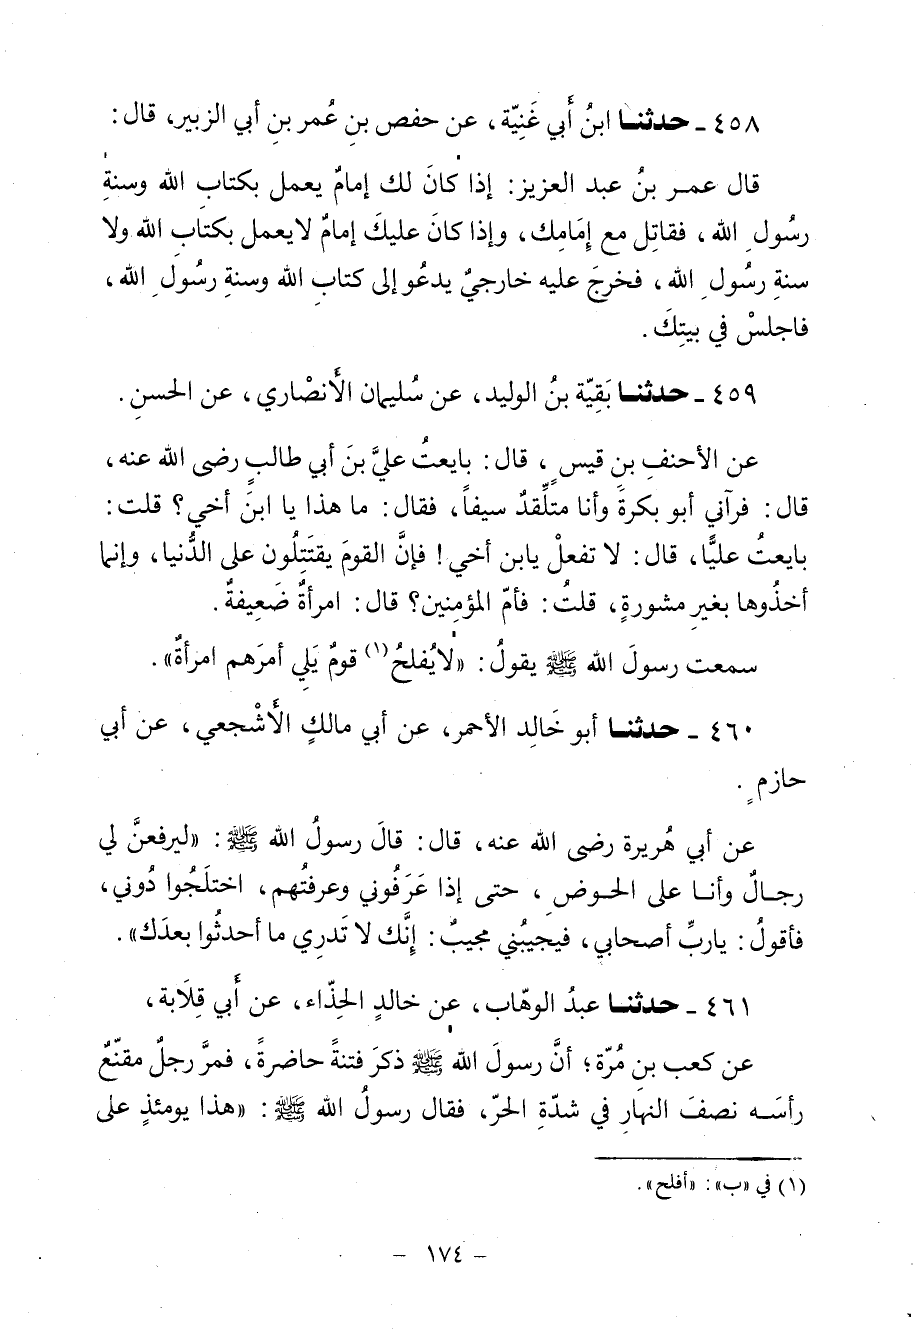 ٤٥٨ ـ حدثنـا ابنُ أَبي غَنِيّة، عن حفص بنِ عُمر بنِ أبي الزبير، قال:
قال عمـر بنُ عبد العزيز: إذا كانَ لك إمامٌ يعمل بكتابِ الله وسنةِ
رسُولِ الله، فقاتِل مع إمَامِك، وإذا كانَ عليكَ إمامٌ لايعمل بكتابِ الله ولا
سنةِ رسُولِ الله، فخرجَ عليه خارجيٌ يدعُو إلى كتابِ الله وسنةِ رسُولِ الله،
فاجلسْ في بيتِكَ.
٤٥٩ ـ حدثنـا بَقِيّة بنُ الوليد، عن سُليمان الأَنصْاري، عن الحسنِ.
عن الأحنفِ بنِ قيسٍ، قال: بايعتُ عليَّ بنَ أبي طالبٍ رضى الله عنه،
قال: فرآني أبو بكرةَ وأنا متلِّقدٌ سيفاً، فقال: ما هذا يا ابنَ أخي؟ قلت:
بايعتُ عليًّا، قال: لا تفعلْ يابن أخي! فإنَّ القومَ يقتَتِلُون على الدُّنيا، وإنما
أخذُوها بغيرِ مشورةٍ، قلتُ: فأمّ المؤمِنين؟ قال: امرأةٌ ضَعِيفةٌ.
سمعت رسولَ الله ﷺ يقولُ: «لايُفلحُ(١) قومٌ يَلي أمرَهم امرأةٌ».
٤٦٠ ـ حدثنـا أبو خَالِد الأحمر، عن أبي مالكٍ الأَشْجعي، عن أبي
حازمٍ.
عن أبي هُريرة رضى الله عنه، قال: قالَ رسولُ الله ﷺ: «ليرفعنَّ لي
رجـالٌ وأنـا على الحـوضِ، حتى إذا عَرَفُوني وعرفتُهم، اختلَجُوا دُوني،
فأقولُ: ياربِّ أصحابي، فيجيبُني مجيبٌ: إنَّك لا تَدرِي ما أحدثُوا بعدَك».
٤٦١ ـ حدثنـا عبدُ الوهّاب، عن خالدٍ الحذّاء، عن أَبي قِلَابة،
عن كعب بنِ مُرّة؛ أنَّ رسولَ الله ﷺ ذكرَ فتنةً حاضرةً، فمرَّ رجلٌ مقنّعٌ
رأسَـه نصفَ النهارِ في شدّةِ الحرِّ، فقال رسولُ الله ﷺ: «هذا يومئذٍ على
(١) في «ب»: «أفلح».
– ١٧٤ –